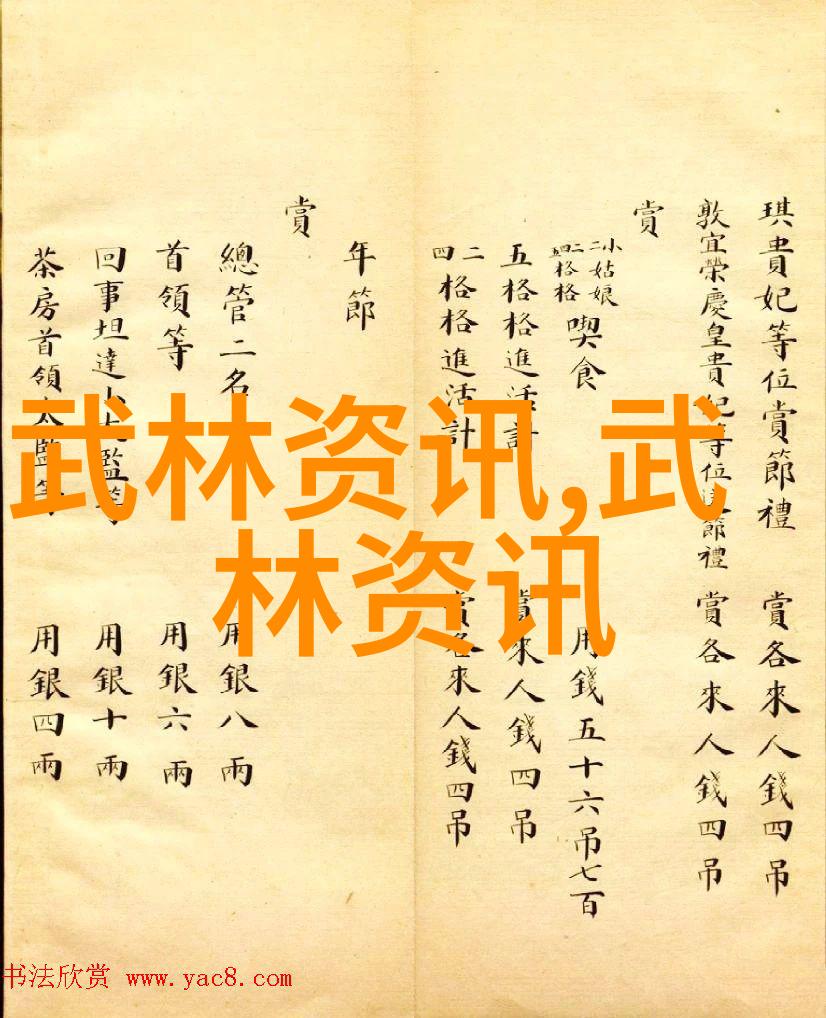 琪貴妃等位賞節禮 賞各來人錢四吊
敦宜榮慶皇貴妃等位節禮 賞各來人錢四吊
賞
小二姑娘
二四格格
喫食 用錢五十六吊七百
五格格進活計 賞各來人錢四吊
二四格格進活計 賞各來人錢四吊
年節
賞
總管二名 用銀八兩
首領等 用銀六兩
回事坦達小太監等 用銀十兩
茶房首領太監等 用銀四兩
武林资讯,武
林资讯
书法欣赏 www.yac8.com